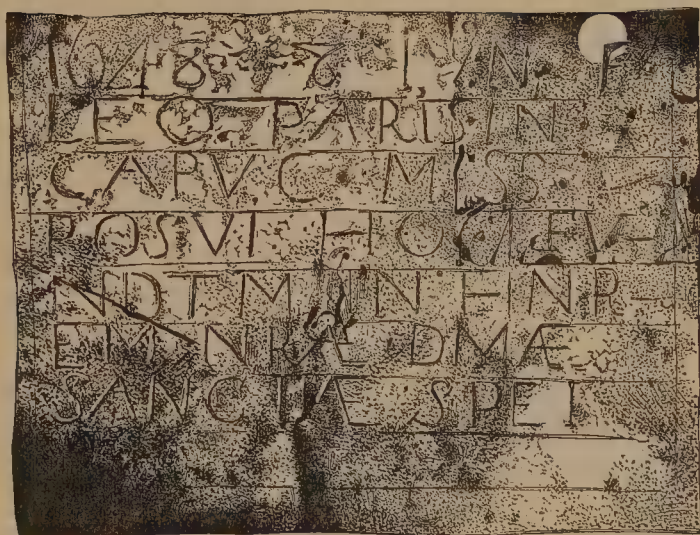 1648 · 8 · IVN · F
LEO · PARIS · IN
CAPVC · MISS ·
POSVI HOC FVN
NDTM IN HNR-
EM NRÆ DMÆ
SANCTÆ SPEI